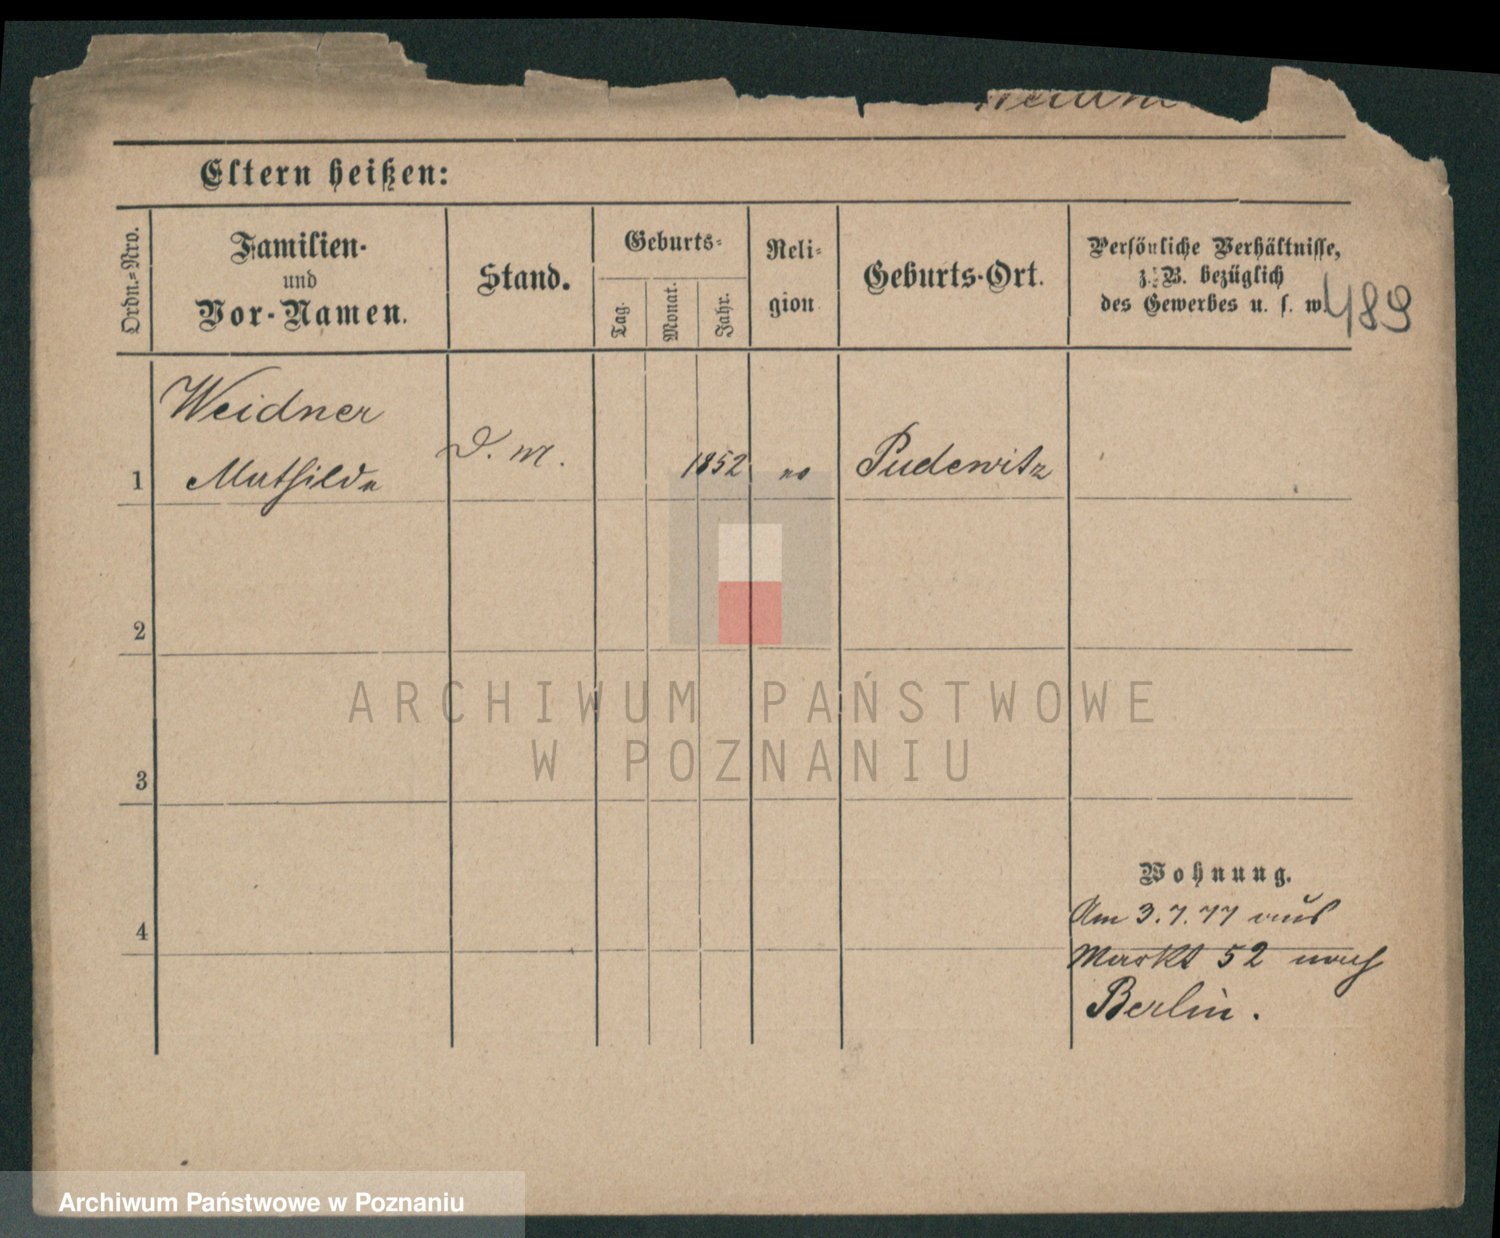 Eltern heißen:
Ordn.-Nro.
Familien-
und
Vor-Namen.
Stand.
Geburts-
Tag.
Monat.
Jahr.
Reli-
gion
Geburts-Ort.
Persönliche Verhältnisse,
z. B. bezüglich
des Gewerbes u. s. w.
489
Weidner
1 Mathilde D. M. 1852 Pudewitz
2
3
4
Wohnung.
Am 3.7.77 aus
Markt 52 nach
Berlin.
ARCHIWUM PAŃSTWOWE
W POZNANIU
Archiwum Państwowe w Poznaniu